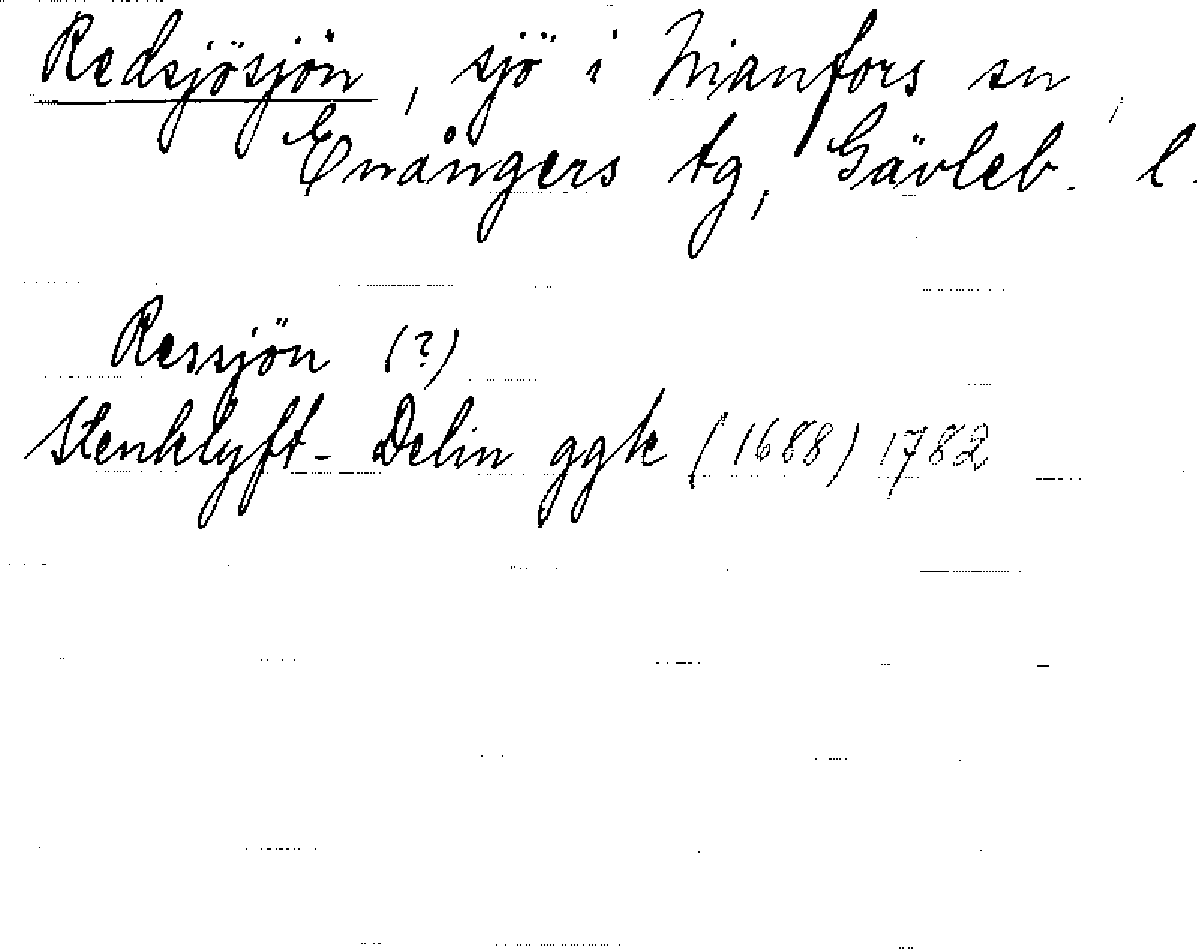 Redsjösjön, sjö i Nianfors sn,
Enångers tg, Gävleb. l.
Ressjön (?)
Stenklyft- Delin ggk (1688) 1782